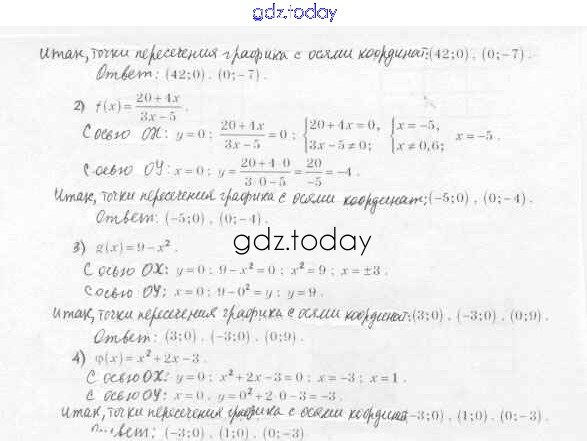 gdz.today
Итак, точки пересечения графика с осями координат: (42;0), (0;−7).
Ответ: (42;0), (0;−7).
2) f(x) = (20+4x)/(3x−5).
С осью OX: y=0; (20+4x)/(3x−5) = 0; {20+4x=0, 3x−5≠0; {x=−5, x≠0,6; x=−5.
С осью OY: x=0; y = (20+4·0)/(3·0−5) = 20/−5 = −4.
Итак, точки пересечения графика с осями координат: (−5;0), (0;−4).
Ответ: (−5;0), (0;−4).
gdz.today
3) g(x)=9−x².
С осью OX: y=0; 9−x²=0; x²=9; x=±3.
С осью OY: x=0; 9−0²=y; y=9.
Итак, точки пересечения графика с осями координат: (3;0), (−3;0), (0;9).
Ответ: (3;0), (−3;0), (0;9).
4) φ(x)=x²+2x−3.
С осью OX: y=0; x²+2x−3=0; x=−3; x=1.
С осью OY: x=0, y=0²+2·0−3=−3.
Итак, точки пересечения графика с осями координа −3;0), (1;0), (0;−3).
Ответ: (−3;0), (1;0), (0;−3)